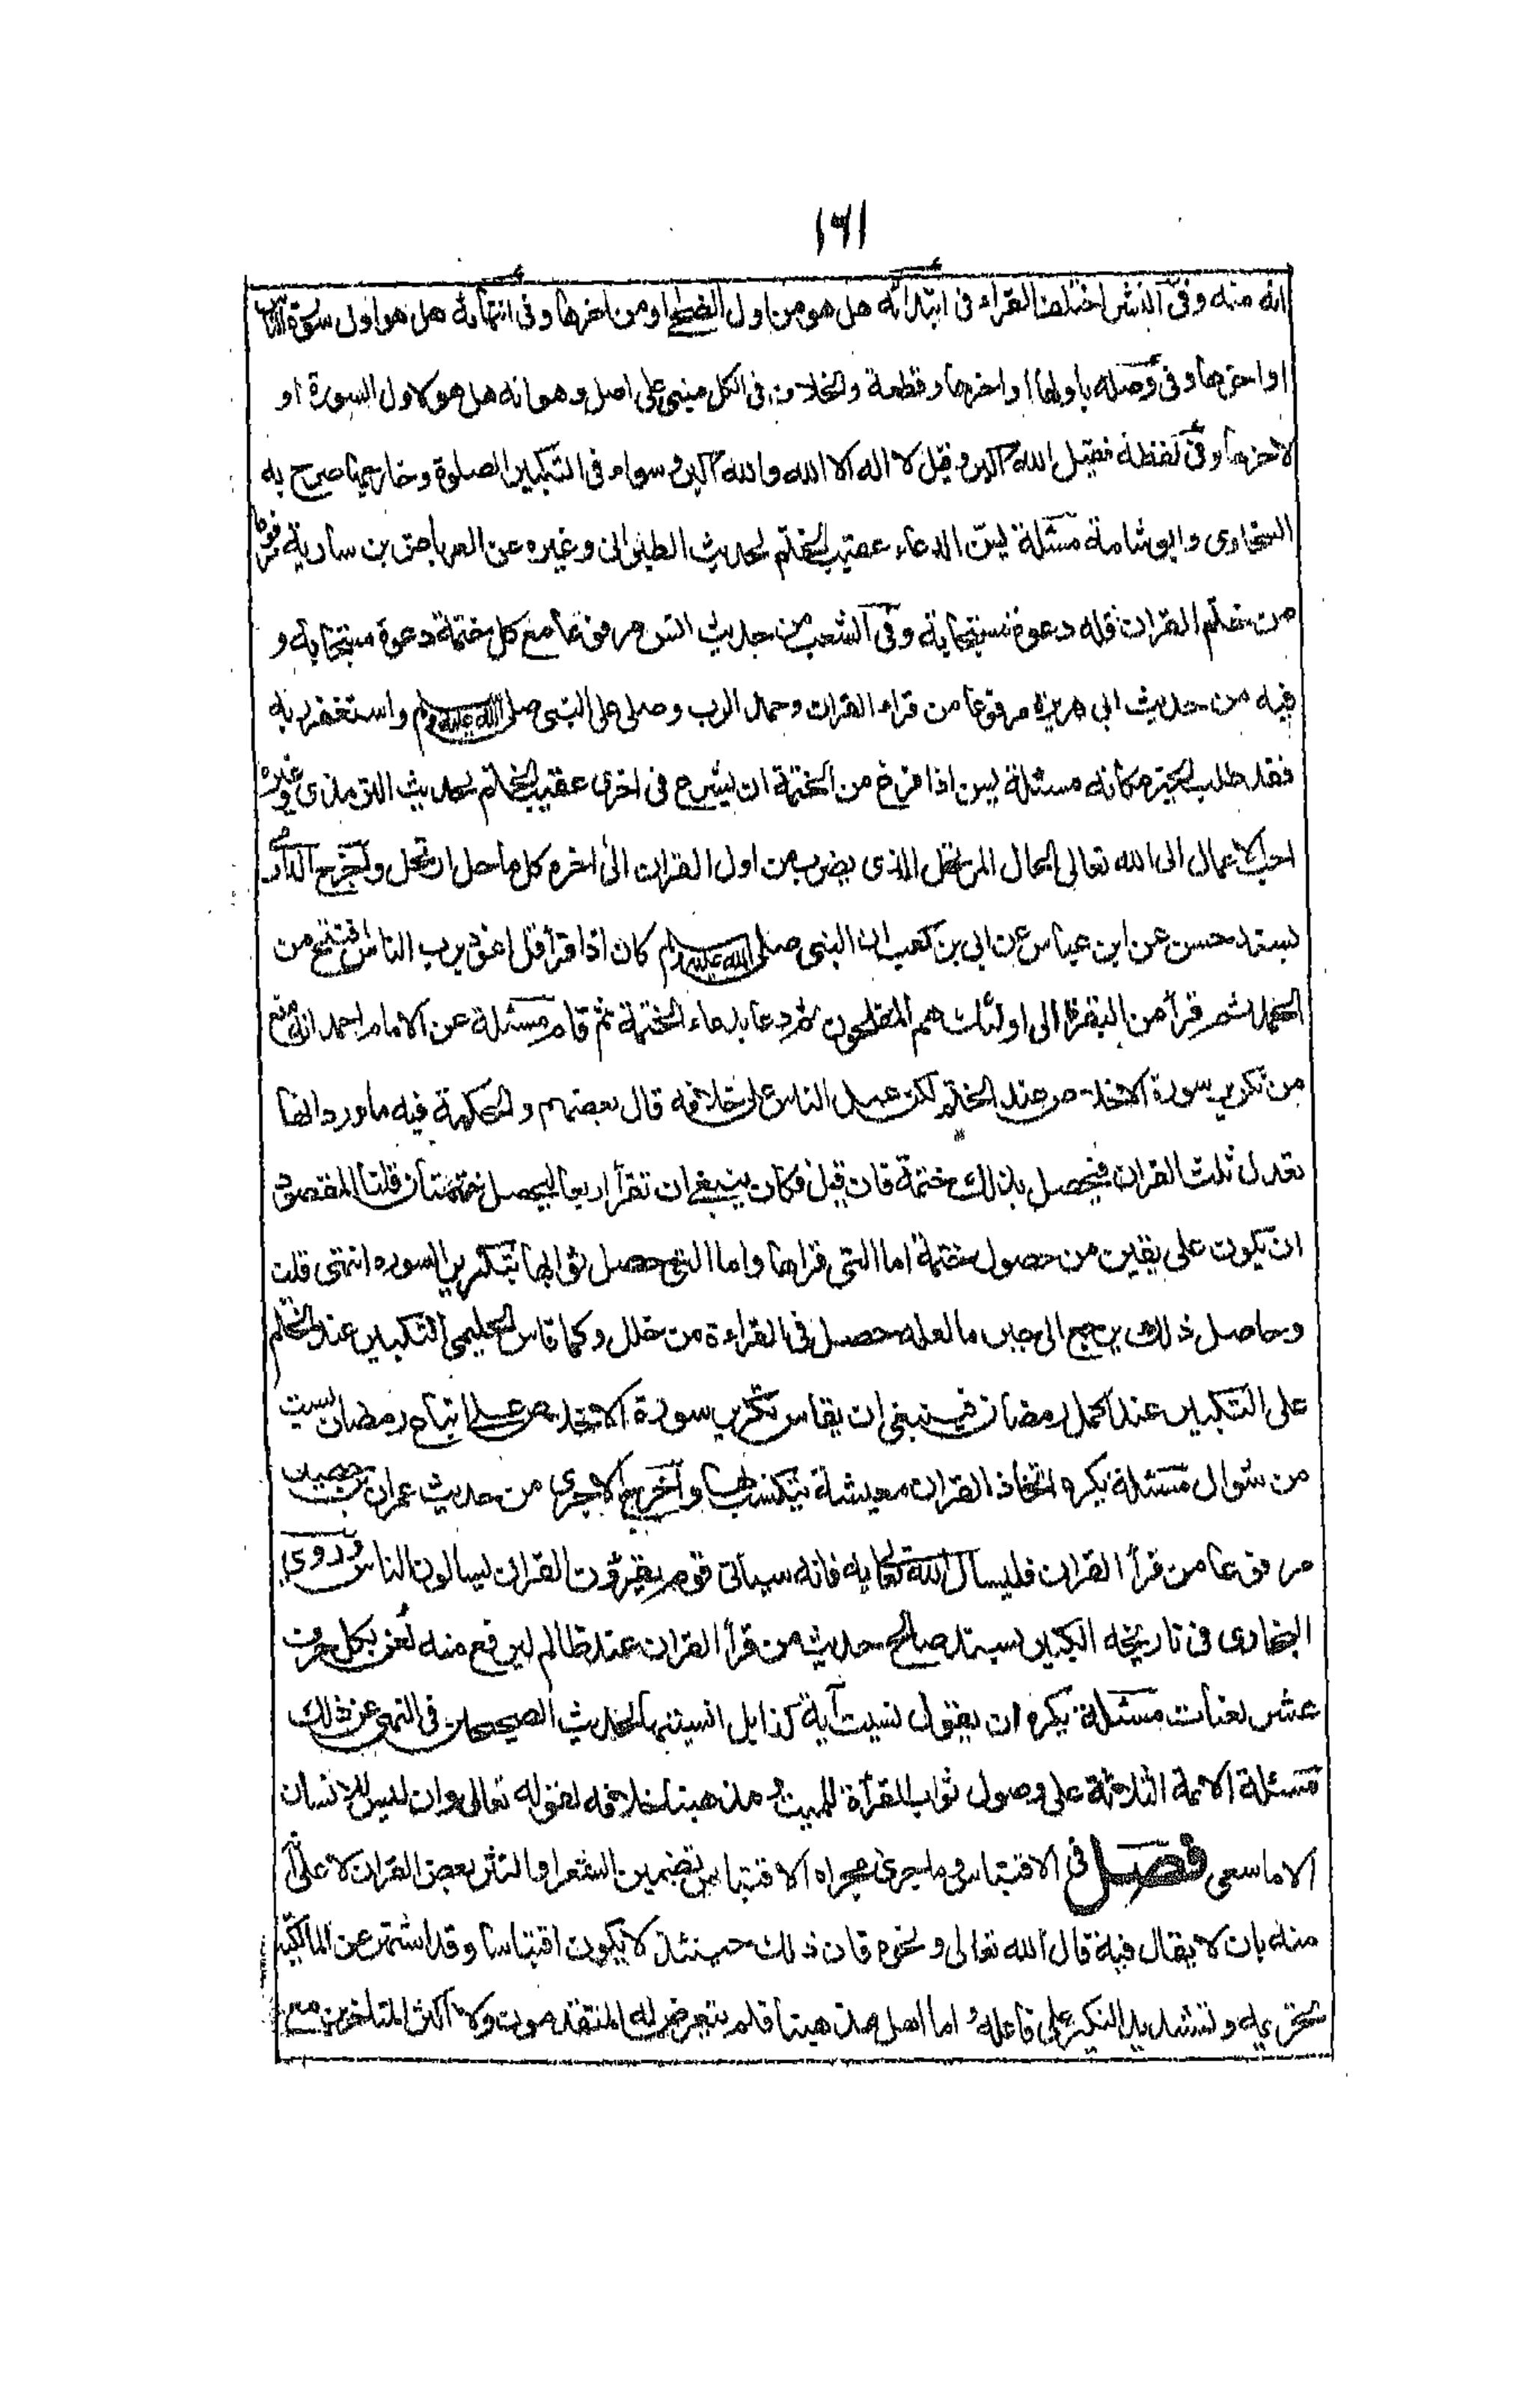 ١٦١
انه منه وفى النشر اختلف القراء فى ابتدائه هل هو من اول الضحى او من اخرها وفى انتهائه هل هو اول سورة الناس
او اخرها وفى وصله باولها او اخرها وقطعه والخلاف فى الكل مبنى على اصل وهو انه هل هو لاول السورة او
لاخرها وفى لفظه فقيل الله اكبر وقيل لا اله الا الله والله اكبر وسواء فى التكبير الصلوة وخارجها صرح به
السخاوى وابو شامة مسئلة يسن الدعاء عقيب الختم لحديث الطبرانى وغيره عن العرباض بن سارية مرفوعا
من ختم القران فله دعوة مستجابة وفى الشعب من حديث انس مرفوعا مع كل ختمة دعوة مستجابة و
فيه من حديث ابى هريرة مرفوعا من قراء القران وحمد الرب وصلى على النبى صلى الله عليه وسلم واستغفر ربه
فقد طلب الخير مكانه مسئلة يسن اذا فرغ من الختمة ان يشرع فى اخرى عقيب الختم لحديث الترمذى وغيره
احب الاعمال الى الله تعالى الحال المرتحل الذى يضرب من اول القران الى اخره كل ما حل ارتحل واخرج الدارمى
بسند حسن عن ابن عباس عن ابى بن كعب ان النبى صلى الله عليه وسلم كان اذا قرأ قل اعوذ برب الناس افتتح من
الحمد ثم قرأ من البقرة الى اولئك هم المفلحون ثم دعا بدعاء الختمة ثم قام مسئلة عن الامام احمد انه منع
من تكرير سورة الاخلاص عند الختم لكن عمل الناس على خلافه قال بعضهم والحكمة فيه ما ورد انها
تعدل ثلث القران فيحصل بذلك ختمة فان قيل فكان ينبغى ان تقرأ اربعا ليحصل ختمتان قلنا المقصود
ان يكون على يقين من حصول ختمة اما التى قراها واما التى حصل ثوابها بتكرير السوره انتهى قلت
وحاصل ذلك يرجع الى جبر ما لعله حصل فى القراءة من خلل وكما قاس الحليمى التكبير عند الختم
على التكبير عند اكمال رمضان فينبغى ان يقاس تكرير سورة الاخلاص على اتباع رمضان بست
من شوال مسئلة يكره اتخاذ القران معيشة يتكسب بها واخرج الاجرى من حديث عمران بن حصين
مرفوعا من قرأ القران فليسال الله تعالى به فانه سياتى قوم يقرؤن القران يسالون الناس به وروى
البخارى فى تاريخه الكبير بسند صالح حديث من قرأ القران عند ظالم ليرفع منه لعن بكل حرف
عشر لعنات مسئلة يكره ان يقول نسيت آية كذا بل انسيتها لحديث الصحيحان فى النهى عن ذلك
مسئلة الائمة الثلاثة على وصول ثواب القرأة للميت و مذهبنا خلافه لقوله تعالى وان ليس للانسان
الا ما سعى فصل فى الاقتباس وما جرى مجراه الاقتباس تضمين الشعر او النثر بعض القران لا على انه
منه بان لا يقال فيه قال الله تعالى ونحوه فان ذلك حينئذ لا يكون اقتباسا وقد اشتهر عن المالكية
تحريمه وتشديد النكير على فاعله اما اهل مذهبنا فلم يتعرض له المتقدمون ولا اكثر المتاخرين مع